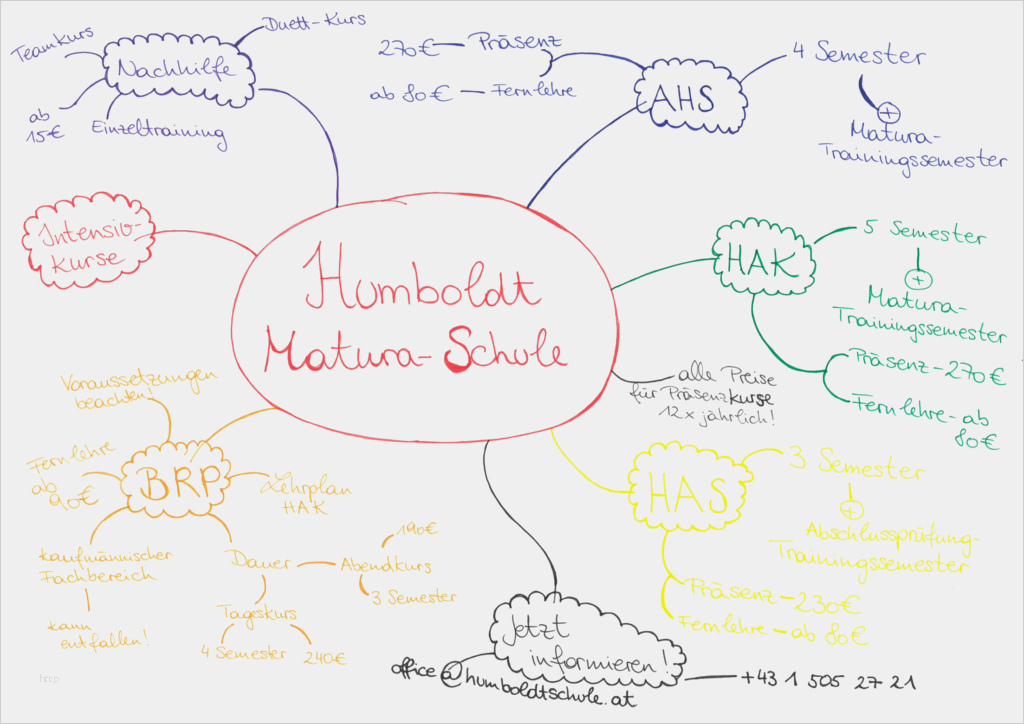 Humboldt
Matura-Schule
Nachhilfe
Teamkurs
Duett-Kurs
ab
15€
Einzeltraining
AHS
270€ — Präsenz
ab 80€ — Fernlehre
4 Semester
+
Matura-
Trainingssemester
HAK
5 Semester
+
Matura-
Trainingssemester
Präsenz - 270€
Fernlehre - ab
80€
alle Preise
für Präsenzkurse
12x jährlich!
HAS
3 Semester
+
Abschlussprüfung-
Trainingssemester
Präsenz - 230€
Fernlehre - ab 80€
Jetzt
informieren!
office@humboldtschule.at
+43 1 505 27 21
BRP
Voraussetzungen
beachten!
Fernlehre
ab
90€
Lehrplan
HAK
kaufmännischer
Fachbereich
kann
entfallen!
Dauer
Abendkurs
190€
3 Semester
Tageskurs
4 Semester
240€
Intensiv-
kurse